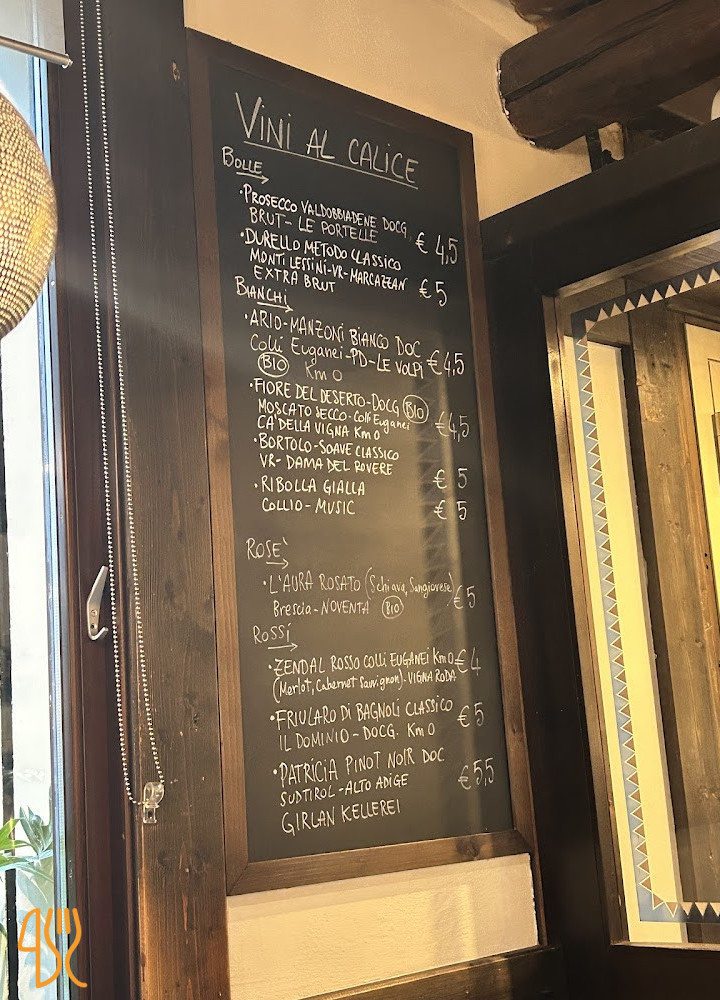 VINI AL CALICE
BOLLE
•PROSECCO VALDOBBIADENE DOCG
BRUT- LE PORTELLE € 4,5
•DURELLO METODO CLASSICO
MONTI LESSINI-VR-MARCAZZAN
EXTRA BRUT € 5
BIANCHI
•ARIO-MANZONI BIANCO DOC
Colli Euganei-PD-LE VOLPI € 4,5
BIO Km 0
•FIORE DEL DESERTO-DOCG BIO
MOSCATO SECCO-Colli Euganei
CA' DELLA VIGNA Km 0 € 4,5
•BORTOLO-SOAVE CLASSICO
VR- DAMA DEL ROVERE € 5
•RIBOLLA GIALLA
COLLIO - MUSIC € 5
ROSE'
•L'AURA ROSATO (Schiava, Sangiovese)
Brescia-NOVENTA BIO € 5
ROSSI
•ZENDAL ROSSO COLLI EUGANEI Km 0 € 4
(Merlot, Cabernet Sauvignon)-VIGNA RODA
•FRIULARO DI BAGNOLI CLASSICO
IL DOMINIO - DOCG. Km 0 € 5
•PATRICIA PINOT NOIR DOC
SUDTIROL-ALTO ADIGE € 5,5
GIRLAN KELLEREI